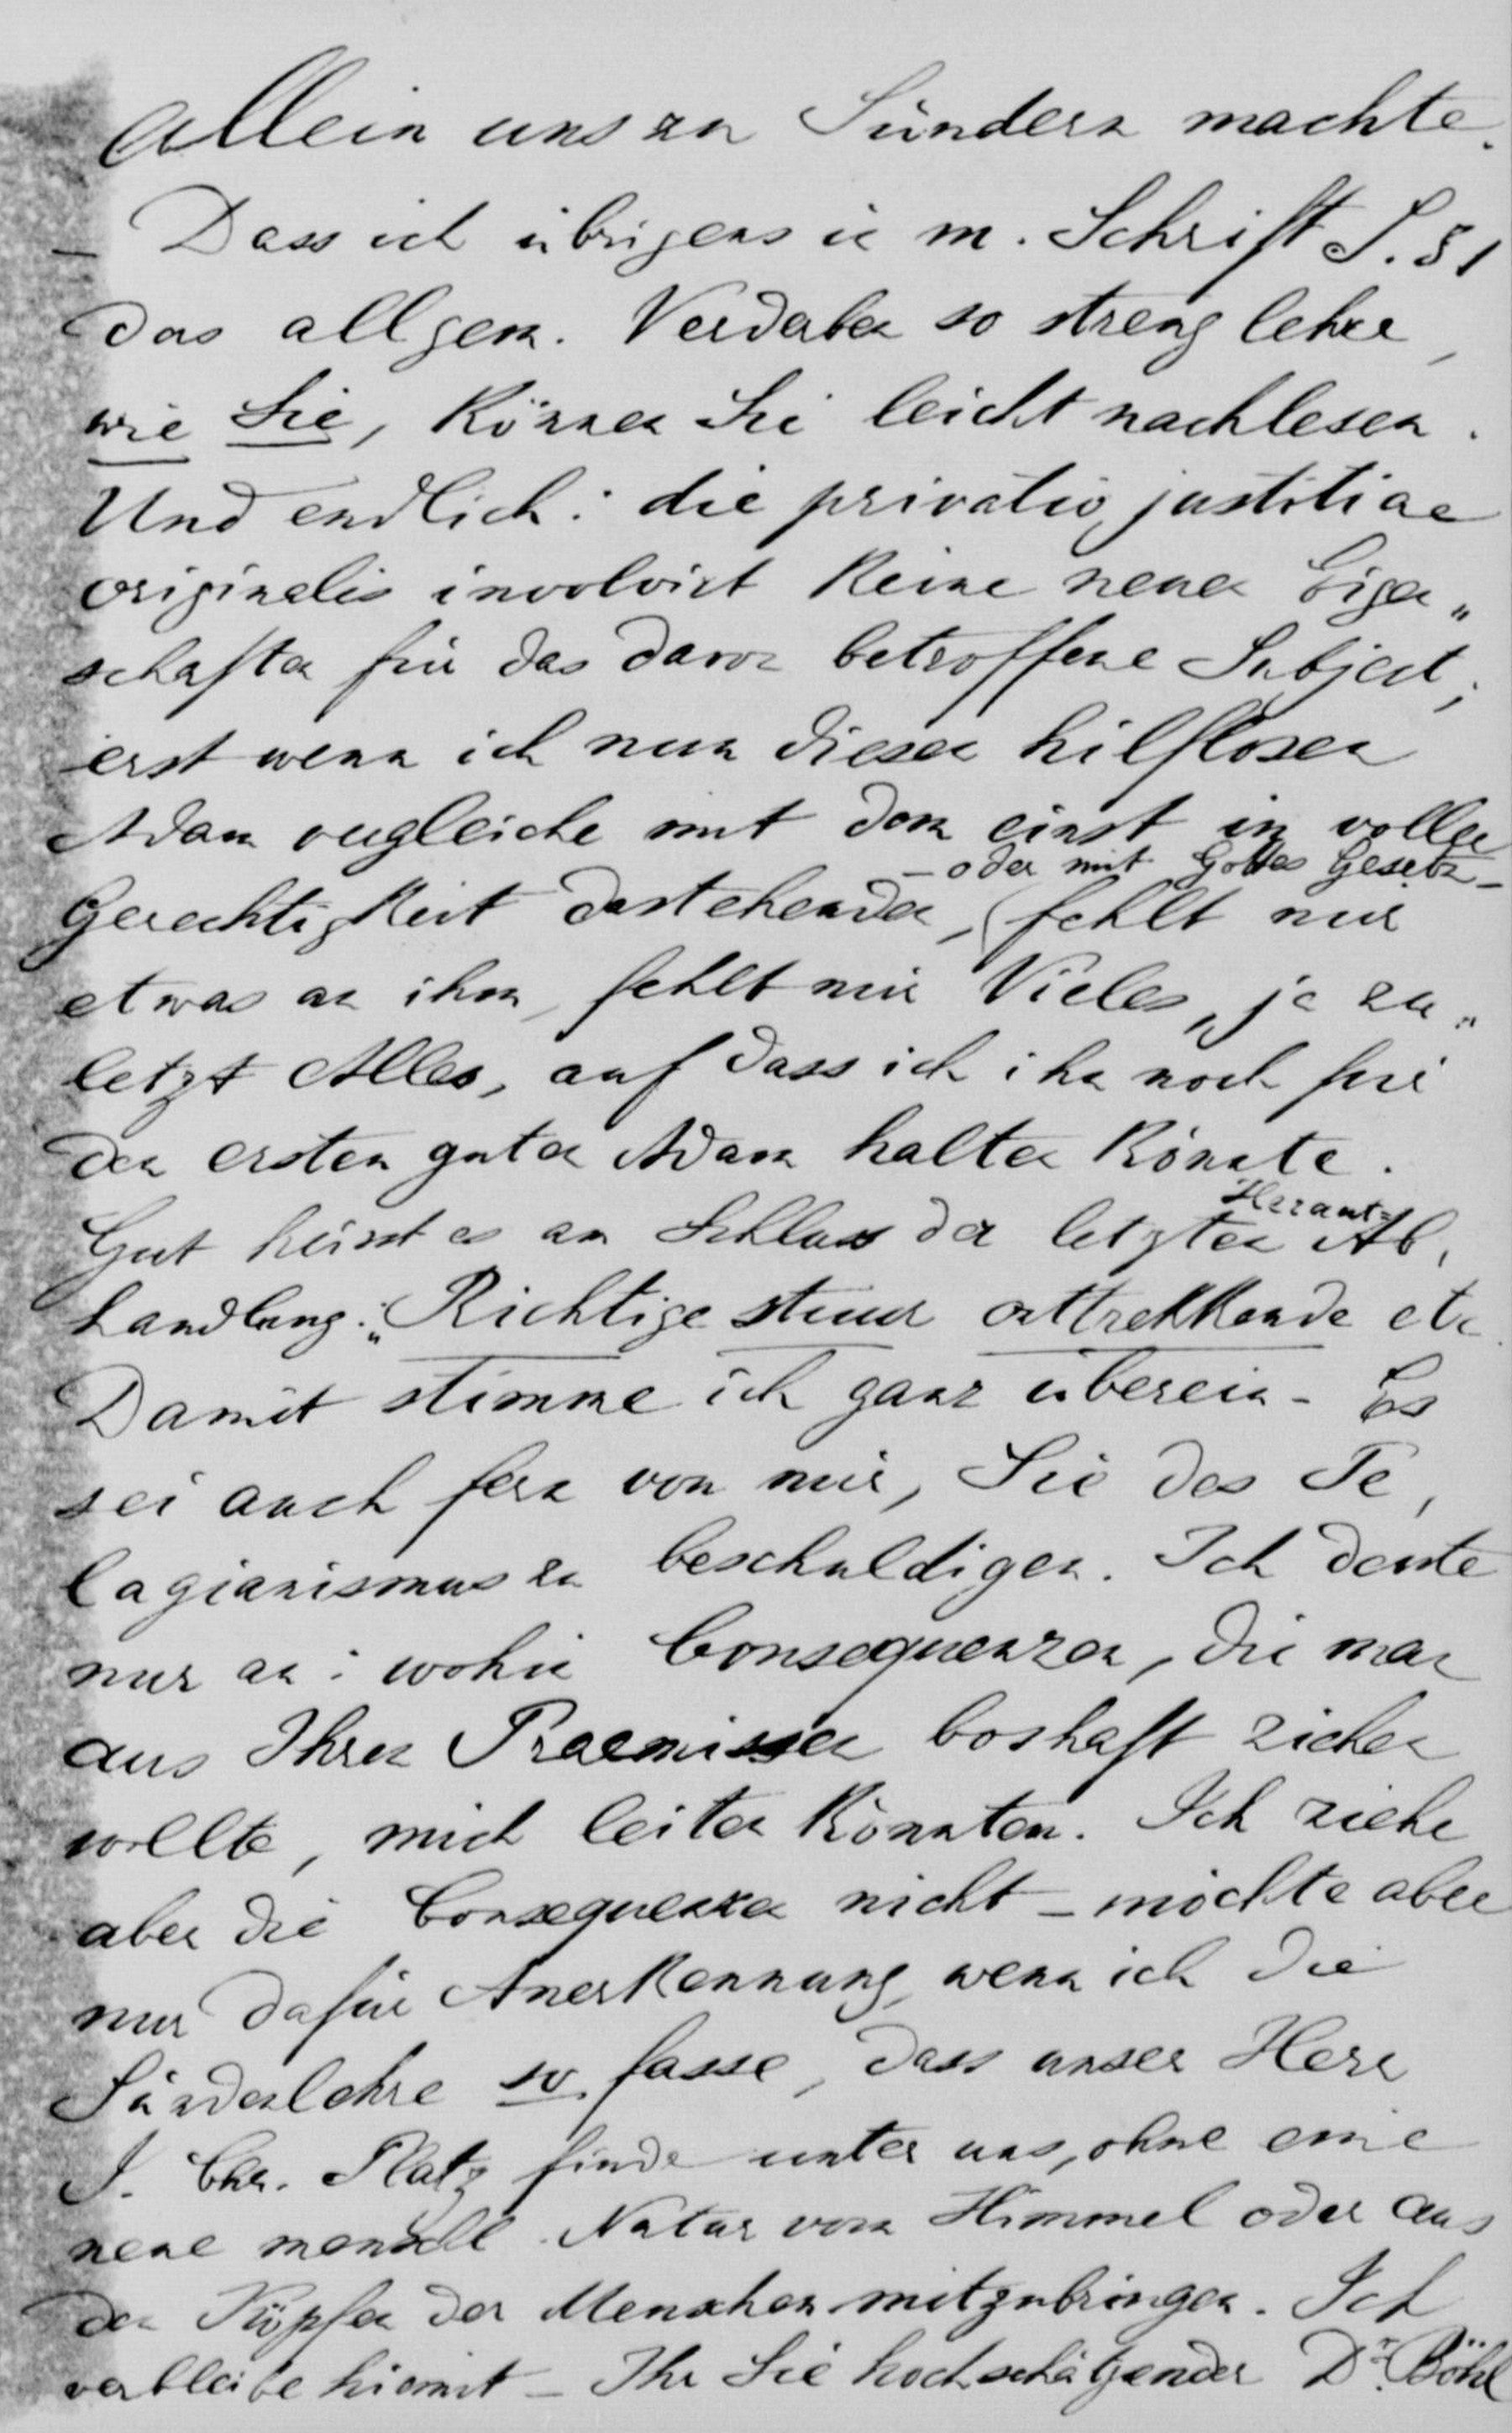 allein uns zu Sündern machte.
– Dass ich übrigens in m. Schrift S. 81
das allgem. Verderben so streng lehre,
wie Sie, können Sie leicht nachlesen.
Und endlich: die privatio justitiae
originalis involvirt keine neuen Eigen„
schaften für das davon betroffene Subject;
erst wenn ich nun diesen hilflosen
Adam vergleiche mit dem einst in voller
– oder mit Gottes Gesetz –
Gerechtigkeit dastehenden, fehlt mir
etwas an ihm, fehlt mir Vieles, ja zu„
letzt Alles, auf dass ich ihn noch für
den ersten guten Adam halten könnte.
Gut heisst es am Schluss der letzten Heraut=Ab,
handlung: „Richtige stuur aftrekkende etc.
Damit stimme ich ganz überein – Es
sei auch fern von mir, Sie des Pe,
lagianismus zu beschuldigen. Ich deute
nur an: wohin Consequenzen, die man
aus Ihren Praemissen boshaft ziehen
wollte, mich leiten könnten. Ich ziehe
aber die Consequenzen nicht – möchte aber
nur dafür Anerkennung, wenn ich die
Sündenlehre so fasse, dass unser Herr
J. Chr. Platz finde unter uns, ohne eine
neue menschl. Natur vom Himmel oder aus
den Köpfen der Menschen mitzubringen. Ich
verbleibe hiemit – Ihr Sie hochschätzender Dr. Böhl